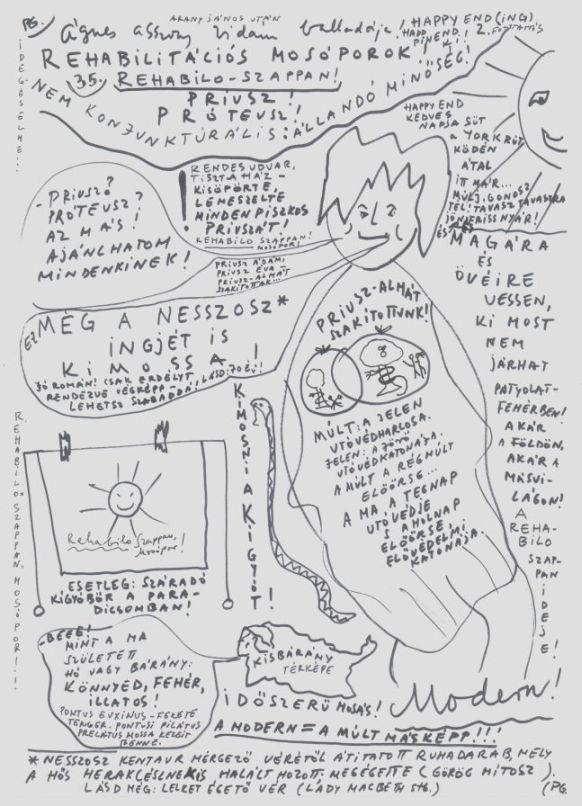 PG.
ARANY JÁNOS UTÁN
Ágnes asszony vidám balladája!
HAPPY END(ING)
REHABILITÁCIÓS MOSÓPOROK!
35. REHABILO-SZAPPAN!
PRIUSZ!
PRÓTEUSZ!
NEM KONJUNKTÚRÁLIS: ÁLLANDÓ MINŐSÉG!
HAPPY END
KEDVES
NAPJA SÜT
A YORK RÚT
KÖDÉN
ÁTAL
ITT MÁR...
MÚLJ, GONOSZ
TÉL! TAVASZ, TAVASZRA
JÖNJ FRISS NYÁR!
- PRIUSZ?
PRÓTEUSZ?
AZ MÁS!
AJÁNLHATOM
MINDENKINEK!
! RENDES UDVAR,
TISZTA HÁZ -
KISÖPÖRTE,
LEMESZELTE
MINDEN PISZKOS
PRIUSZÁT!
REHABILO SZAPPAN!
MOSÓPOR!
PRIUSZ ÁDÁM,
PRIUSZ ÉVA -
PRIUSZ-ALMÁT
SZAKÍTOTTAK...
EZ MÉG A NESSZOSZ*
INGJÉT IS
KIMOSSA!
JÓ ROMÁN! CSAK ERDÉLYT
RENDEZVE VÉGKÉPP -
LEHETSZ SZABADDÁ!
PRIUSZ-ALMÁT
SZAKÍTOTTUNK!
MÚLT: A JELEN
UTÓVÉDHARCOSA.
JELEN: A JÖVŐ
UTÓVÉDKATONÁJA.
A MÚLT A RÉGMÚLT
ELŐŐRSE...
A MA A TEGNAP
UTÓVÉDJE
S A HOLNAP
ELŐŐRSE
ELŐVÉDELMI
KATONÁJA.
ÉS
MAGÁRA
ÉS
ÖVÉIRE
VESSEN,
KI MOST
NEM
JÁRHAT
PATYOLAT-
FEHÉRBEN!
AKÁR
A FÖLDÖN,
AKÁR A
MÁSVI-
LÁGON!
A
REHA-
BILO
SZAP-
PAN
IDEJE!
KIMOSNI A KÍGYÓT!
REHABILO-SZAPPAN, MOSÓPOR!...!
Rehabilo szappan,
ESETLEG: SZÁRADÓ
KÍGYÓBŐR A PARA-
DICSOMBAN!
- BEEE!
MINT A MA
SZÜLETETT
HÓ VAGY BÁRÁNY:
KÖNNYED, FEHÉR,
ILLATOS!
PONTUS EUXINUS - FEKETE
TENGER. PONTUSI PILÁTUS
PRELÁTUS MOSSA KEZEIT
BENNE.
KISBÁRÁNY
TÉRKÉPE
IDŐSZERŰ MOSÁS!
Modern!
A MODERN = A MÚLT MÁSKÉPP!!!
* NESSZOSZ KENTAUR MÉRGEZŐ VÉRÉTŐL ÁTITATOTT RUHADARAB, MELY
A HŐS HERAKLÉSZNEK IS HALÁLT HOZOTT. MEGÉGETTE (GÖRÖG MÍTOSZ).
LÁSD MÉG: LELKET ÉGETŐ VÉR (LADY MACBETH STB.)
(PG.